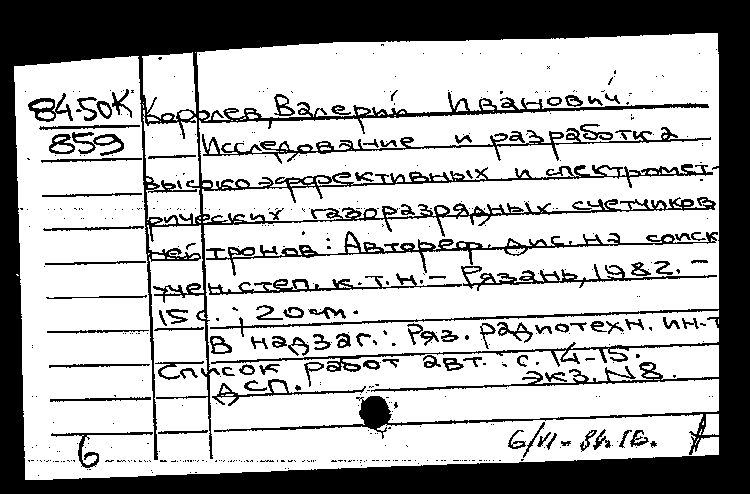 84-50К Королев, Валерий Иванович.
859 Исследование и разработка
высокоэффективных и спектромет-
рических газоразрядных счетчиков
нейтронов: Автореф. дис. на соиск
учен. степ. к. т. н. - Рязань, 1982. -
15 с. ; 20 см.
В надзаг.: Ряз. радиотехн. ин-т
Список работ авт.: с. 14-15.
ДСП. экз. N8.
6 6/VI-84